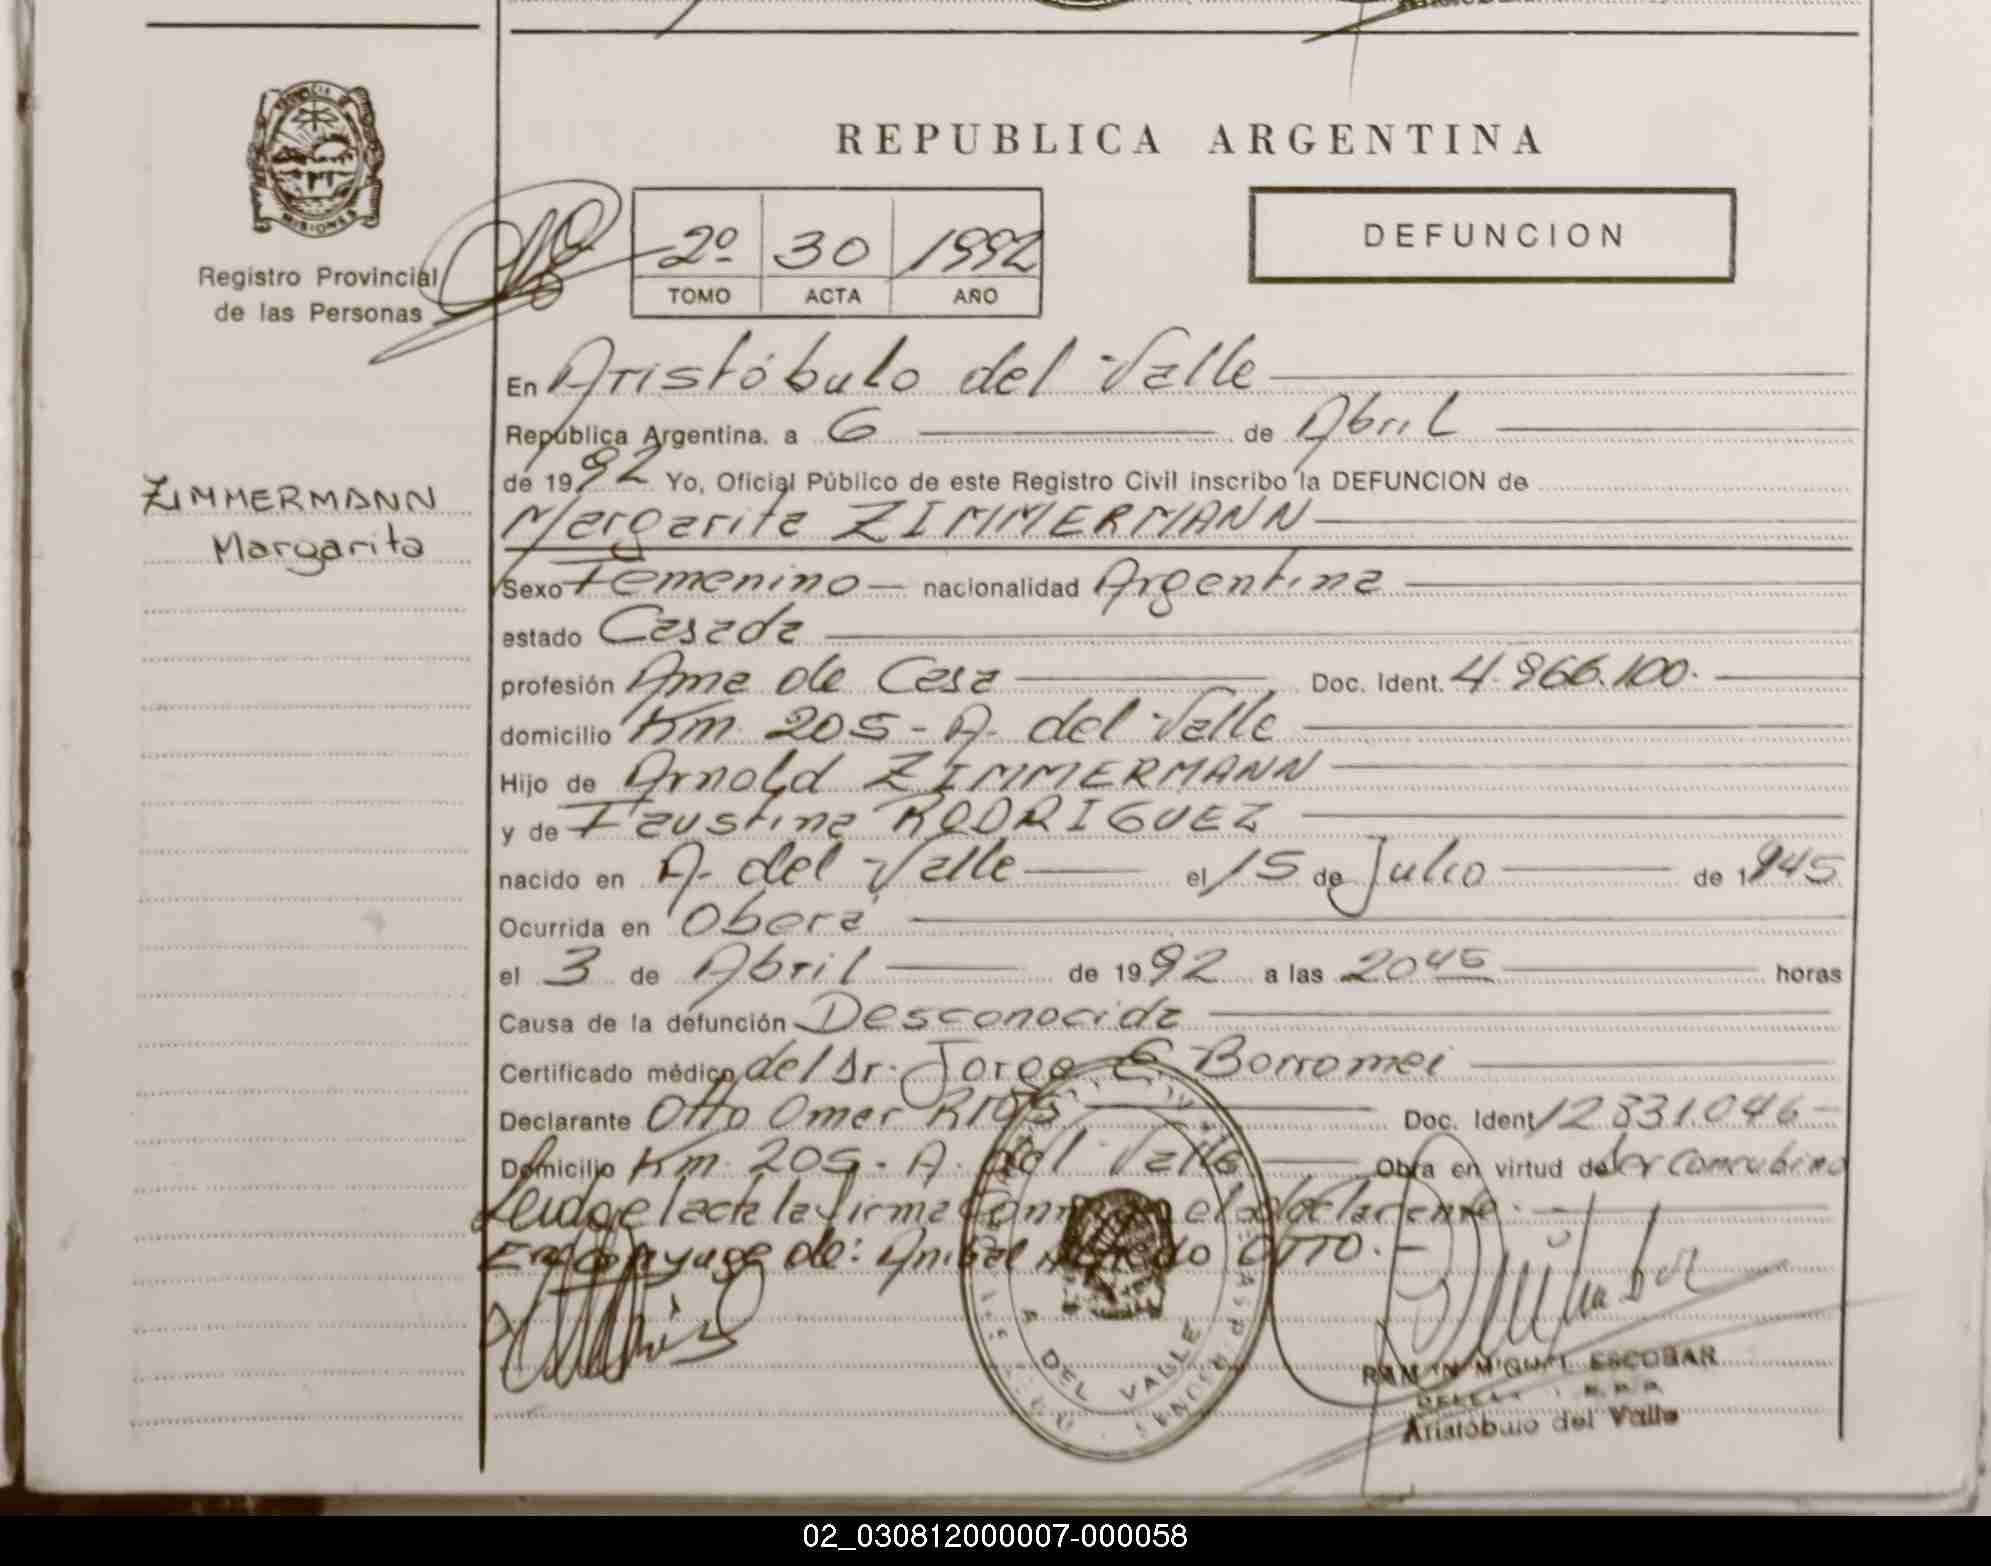 REPUBLICA ARGENTINA
PROVINCIA D
MISIONES
Registro Provincial
de las Personas
2º 30 1992
TOMO ACTA AÑO
DEFUNCION
ZIMMERMANN
Margarita
En Aristóbulo del Valle
República Argentina, a 6 de Abril
de 1992 Yo, Oficial Público de este Registro Civil inscribo la DEFUNCION de
Margarita ZIMMERMANN
Sexo Femenino nacionalidad Argentina
estado Casada
profesión Ama de Casa Doc. Ident. 4.966.100.
domicilio Km. 205 - A. del Valle
Hijo de Arnold ZIMMERMANN
y de Faustina RODRIGUEZ
nacido en A. del Valle el 15 de Julio de 1945
Ocurrida en Oberá
el 3 de Abril de 1992 a las 20 45 horas
Causa de la defunción Desconocida
Certificado médico del Dr. Jorge E. Borromei
Declarante Otto Omar RIOS Doc. Ident 12.831.046
Domicilio Km. 205 - A. del Valle Obra en virtud de ser concubino
Leida el acta la firma conmigo el declarante.
Era conyuge de: Anibal OTTO.
A DEL VALLE
RAMON MIGUEL ESCOBAR
Aristóbulo del Valle
02_030812000007-000058